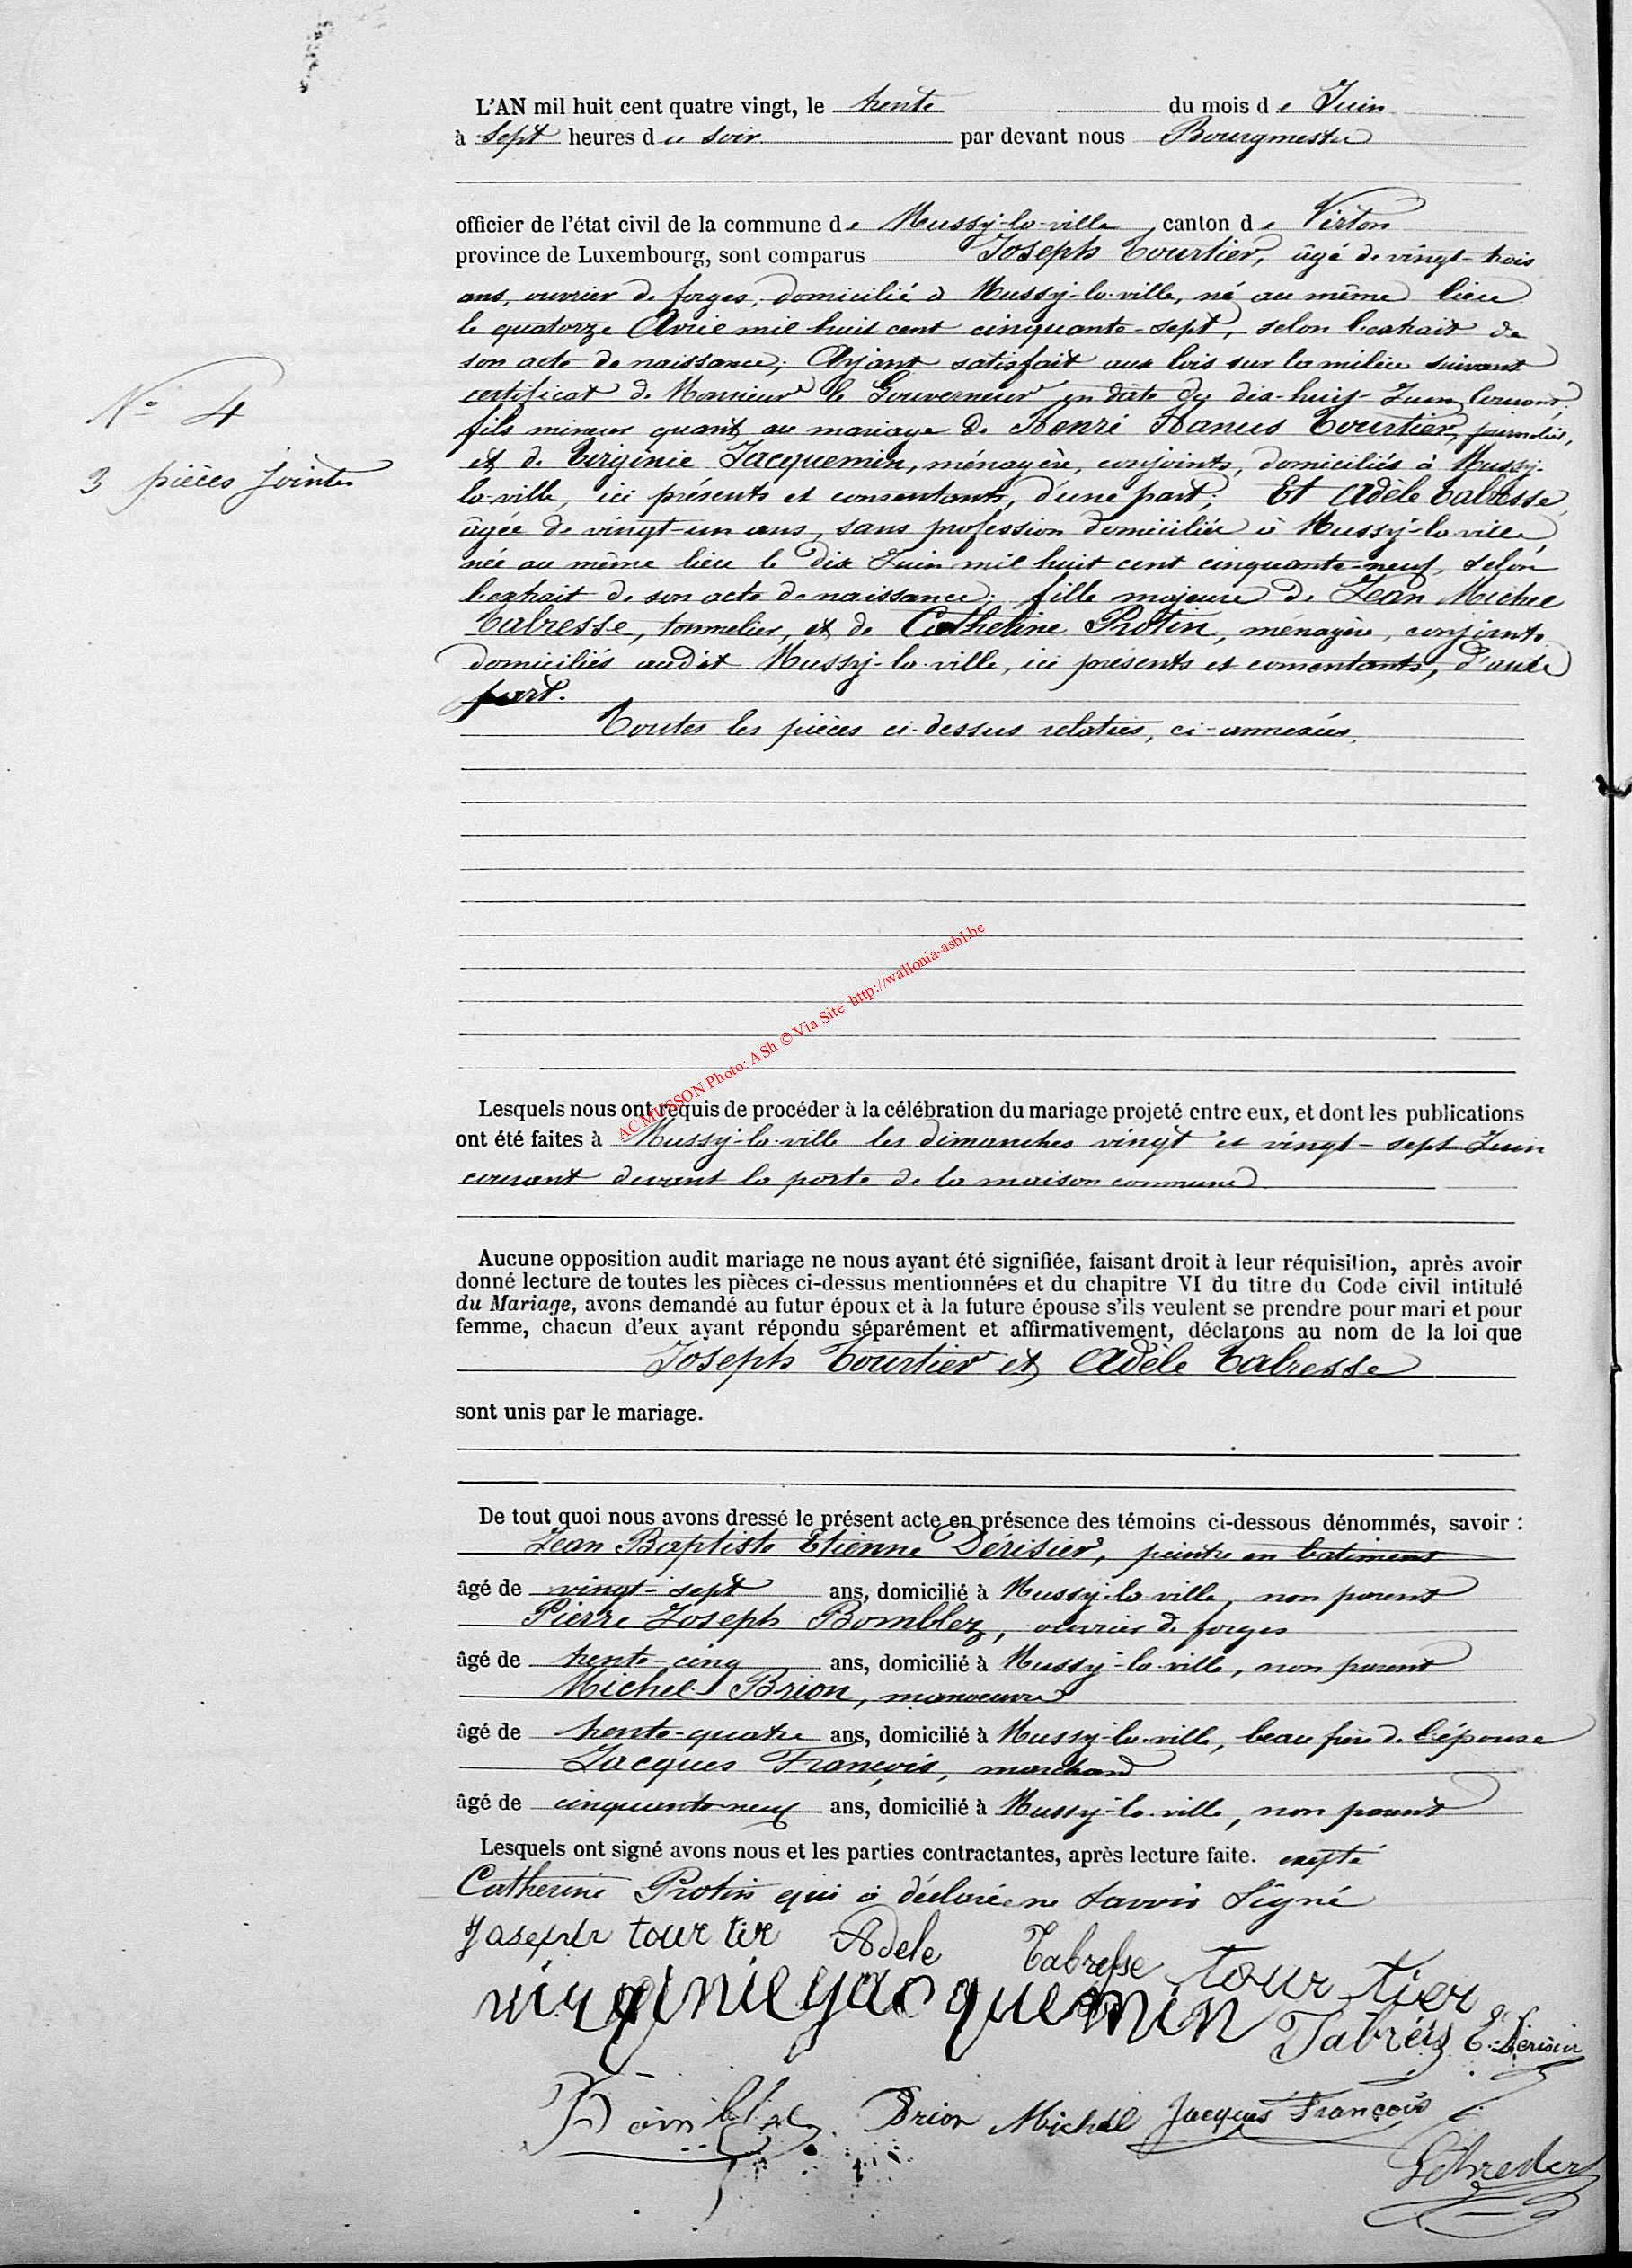 L'AN mil huit cent quatre vingt, le trente du mois de Juin
à sept heures du soir par devant nous Bourgmestre
officier de l'état civil de la commune de Mussy-la-ville canton de Virton
province de Luxembourg, sont comparus Joseph Tourtier, âgé de vingt-trois
ans, ouvrier de forges, domicilié à Mussy-la-ville, né au même lieu
le quatorze Avril mil huit cent cinquante-sept, selon l'extrait de
son acte de naissance; Ayant satisfait aux lois sur la milice suivant
certificat de Monsieur le Gouverneur en date du dix-huit Juin courant;
N° 4
fils mineur quant au mariage de Henri Tourtier, journalier,
3 pièces jointes
et de Virginie Jacquemin, ménagère, conjoints, domiciliés à Mussy-
la-ville, ici présents et consentants, d'une part; Et Adèle Tabresse,
âgée de vingt-un ans, sans profession domiciliée à Mussy-la-ville,
née au même lieu le dix Juin mil huit cent cinquante-neuf, selon
l'extrait de son acte de naissance; fille majeure de Jean Michel
Tabresse, tonnelier, et de Catherine Protin, ménagère, conjoints
domiciliés audit Mussy-la-ville, ici présents et consentants, d'autre
part.
Toutes les pièces ci-dessus relatées, ci-annexées.
AC MUSSON Photo: ASh © Via Site http://wallonia-asbl.be
Lesquels nous ont requis de procéder à la célébration du mariage projeté entre eux, et dont les publications
ont été faites à Mussy-la-ville les dimanches vingt et vingt-sept Juin
courant devant la porte de la maison commune
Aucune opposition audit mariage ne nous ayant été signifiée, faisant droit à leur réquisition, après avoir
donné lecture de toutes les pièces ci-dessus mentionnées et du chapitre VI du titre du Code civil intitulé
du Mariage, avons demandé au futur époux et à la future épouse s'ils veulent se prendre pour mari et pour
femme, chacun d'eux ayant répondu séparément et affirmativement, déclarons au nom de la loi que
Joseph Tourtier et Adèle Tabresse
sont unis par le mariage.
De tout quoi nous avons dressé le présent acte en présence des témoins ci-dessous dénommés, savoir :
Jean Baptiste Etienne Dérisier, peintre en batiment
âgé de vingt-sept ans, domicilié à Mussy-la-ville, non parent
Pierre Joseph Bomblez, ouvrier de forges
âgé de trente-cinq ans, domicilié à Mussy-la-ville, non parent
Michel Brion, manoeuvre
âgé de trente-quatre ans, domicilié à Mussy-la-ville, beau frère de l'épouse
Jacques François, marchand
âgé de cinquante-neuf ans, domicilié à Mussy-la-ville, non parent
Lesquels ont signé avons nous et les parties contractantes, après lecture faite. excepté
Catherine Protin qui a déclarée ne savoir signé
Joseph tourtier Adele Tabresse tourtier
virginie jacquemin Tabrésse E. Dérisier
Bomblez Brion Michel Jacques François